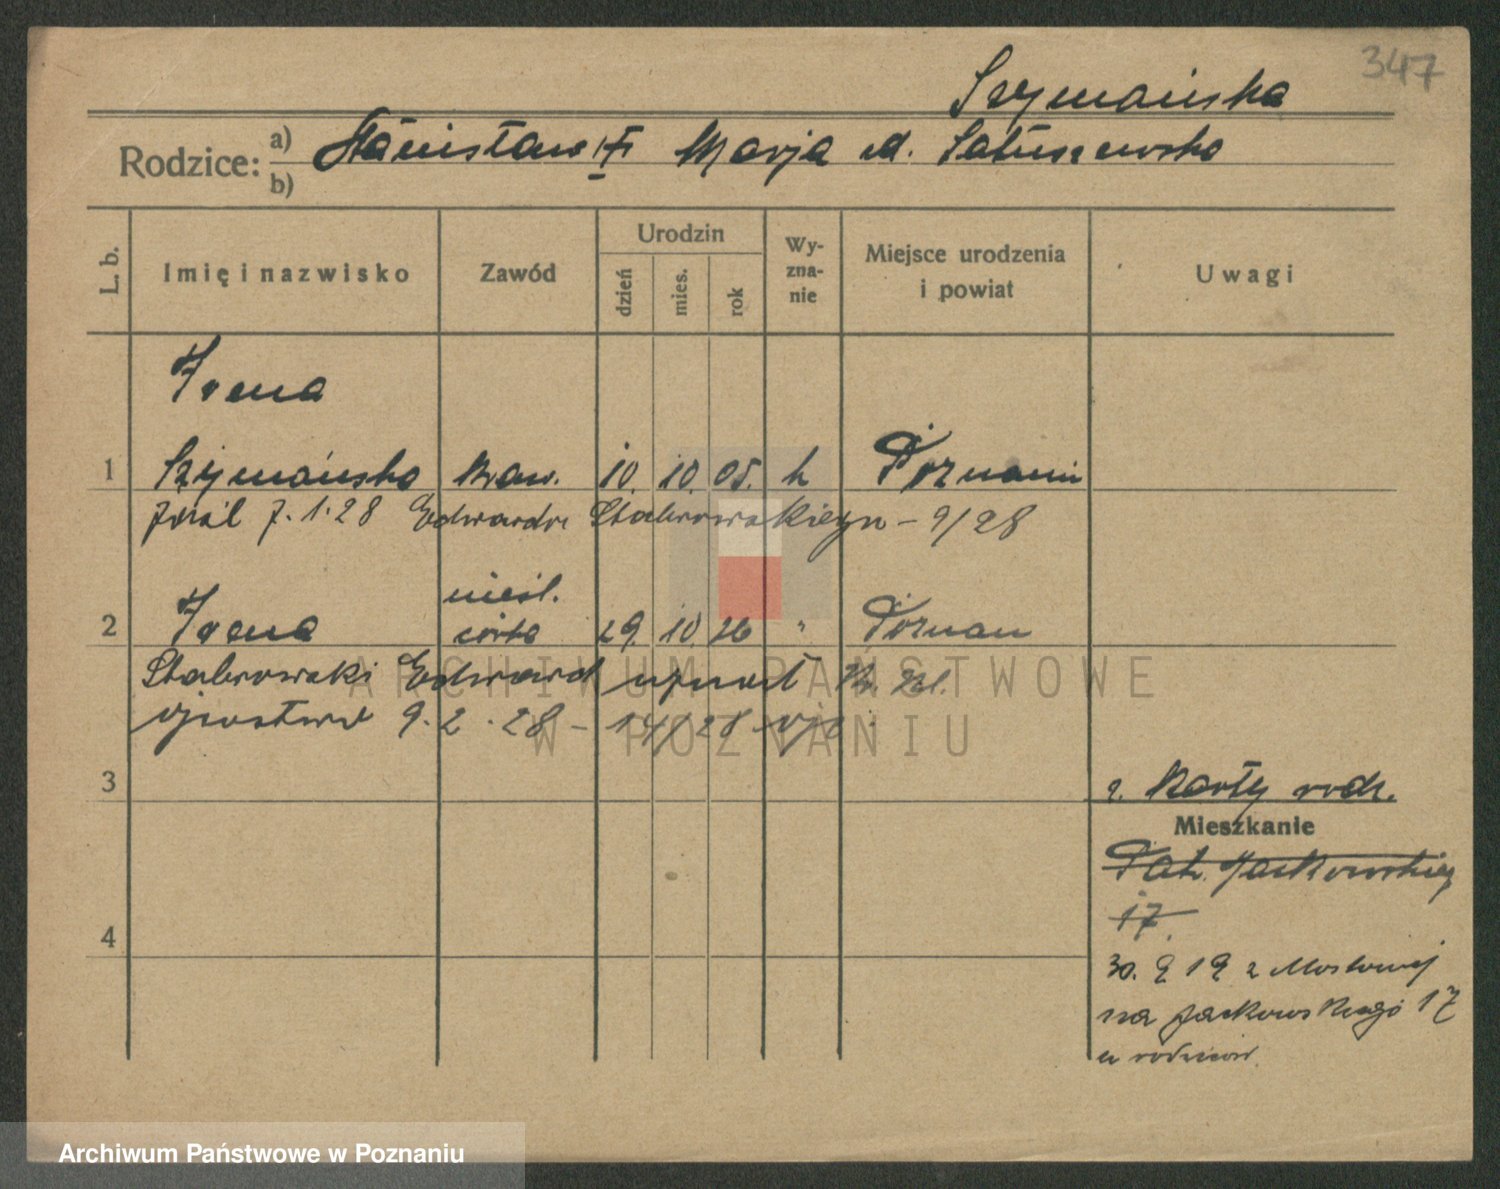 347
Szymańska
Rodzice: a) Stanisław Marja d. Łatuszewska
b)
L. b.
Imię i nazwisko
Zawód
Urodzin
dzień
mies.
rok
Wy-
zna-
nie
Miejsce urodzenia
i powiat
Uwagi
Irena
1 Szymańska kraw. 10. 10. 05. k Poznaniu
7.1.28 Edwarda Stabrowskiego - 9/28
nieśl.
2 Irena córka 29. 10. 26 " Poznań
Stabrowski Edward uznał
ojcostwo 9.2.28 - 14/28
3
z. karty rodz.
Mieszkanie
Pat. Jackowskiej
17.
4
30. 9 19 z Mostowej
na Jackowskiego 17
u rodziców.
ARCHIWUM PAŃSTWOWE
W POZNANIU
Archiwum Państwowe w Poznaniu